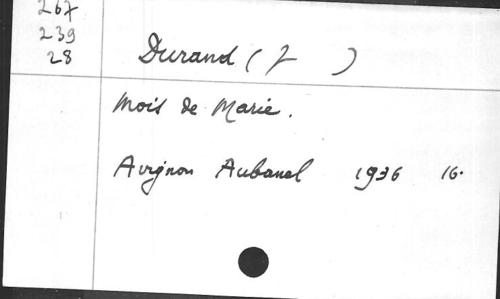 267
239
28
Durand (J )
Mois de Marie.
Avignon Aubanel 1936 16.